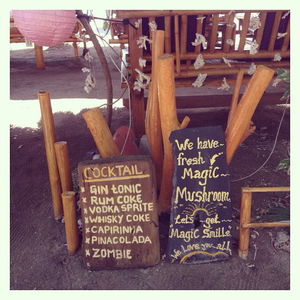 COCKTAIL
GIN & TONIC
RUM COKE
VODKA SPRITE
WHISKY COKE
CAPIRINHA
PINACOLADA
ZOMBIE
We have
fresh
Magic
Mushroom
Lets get
Magic Smille
We Love you all